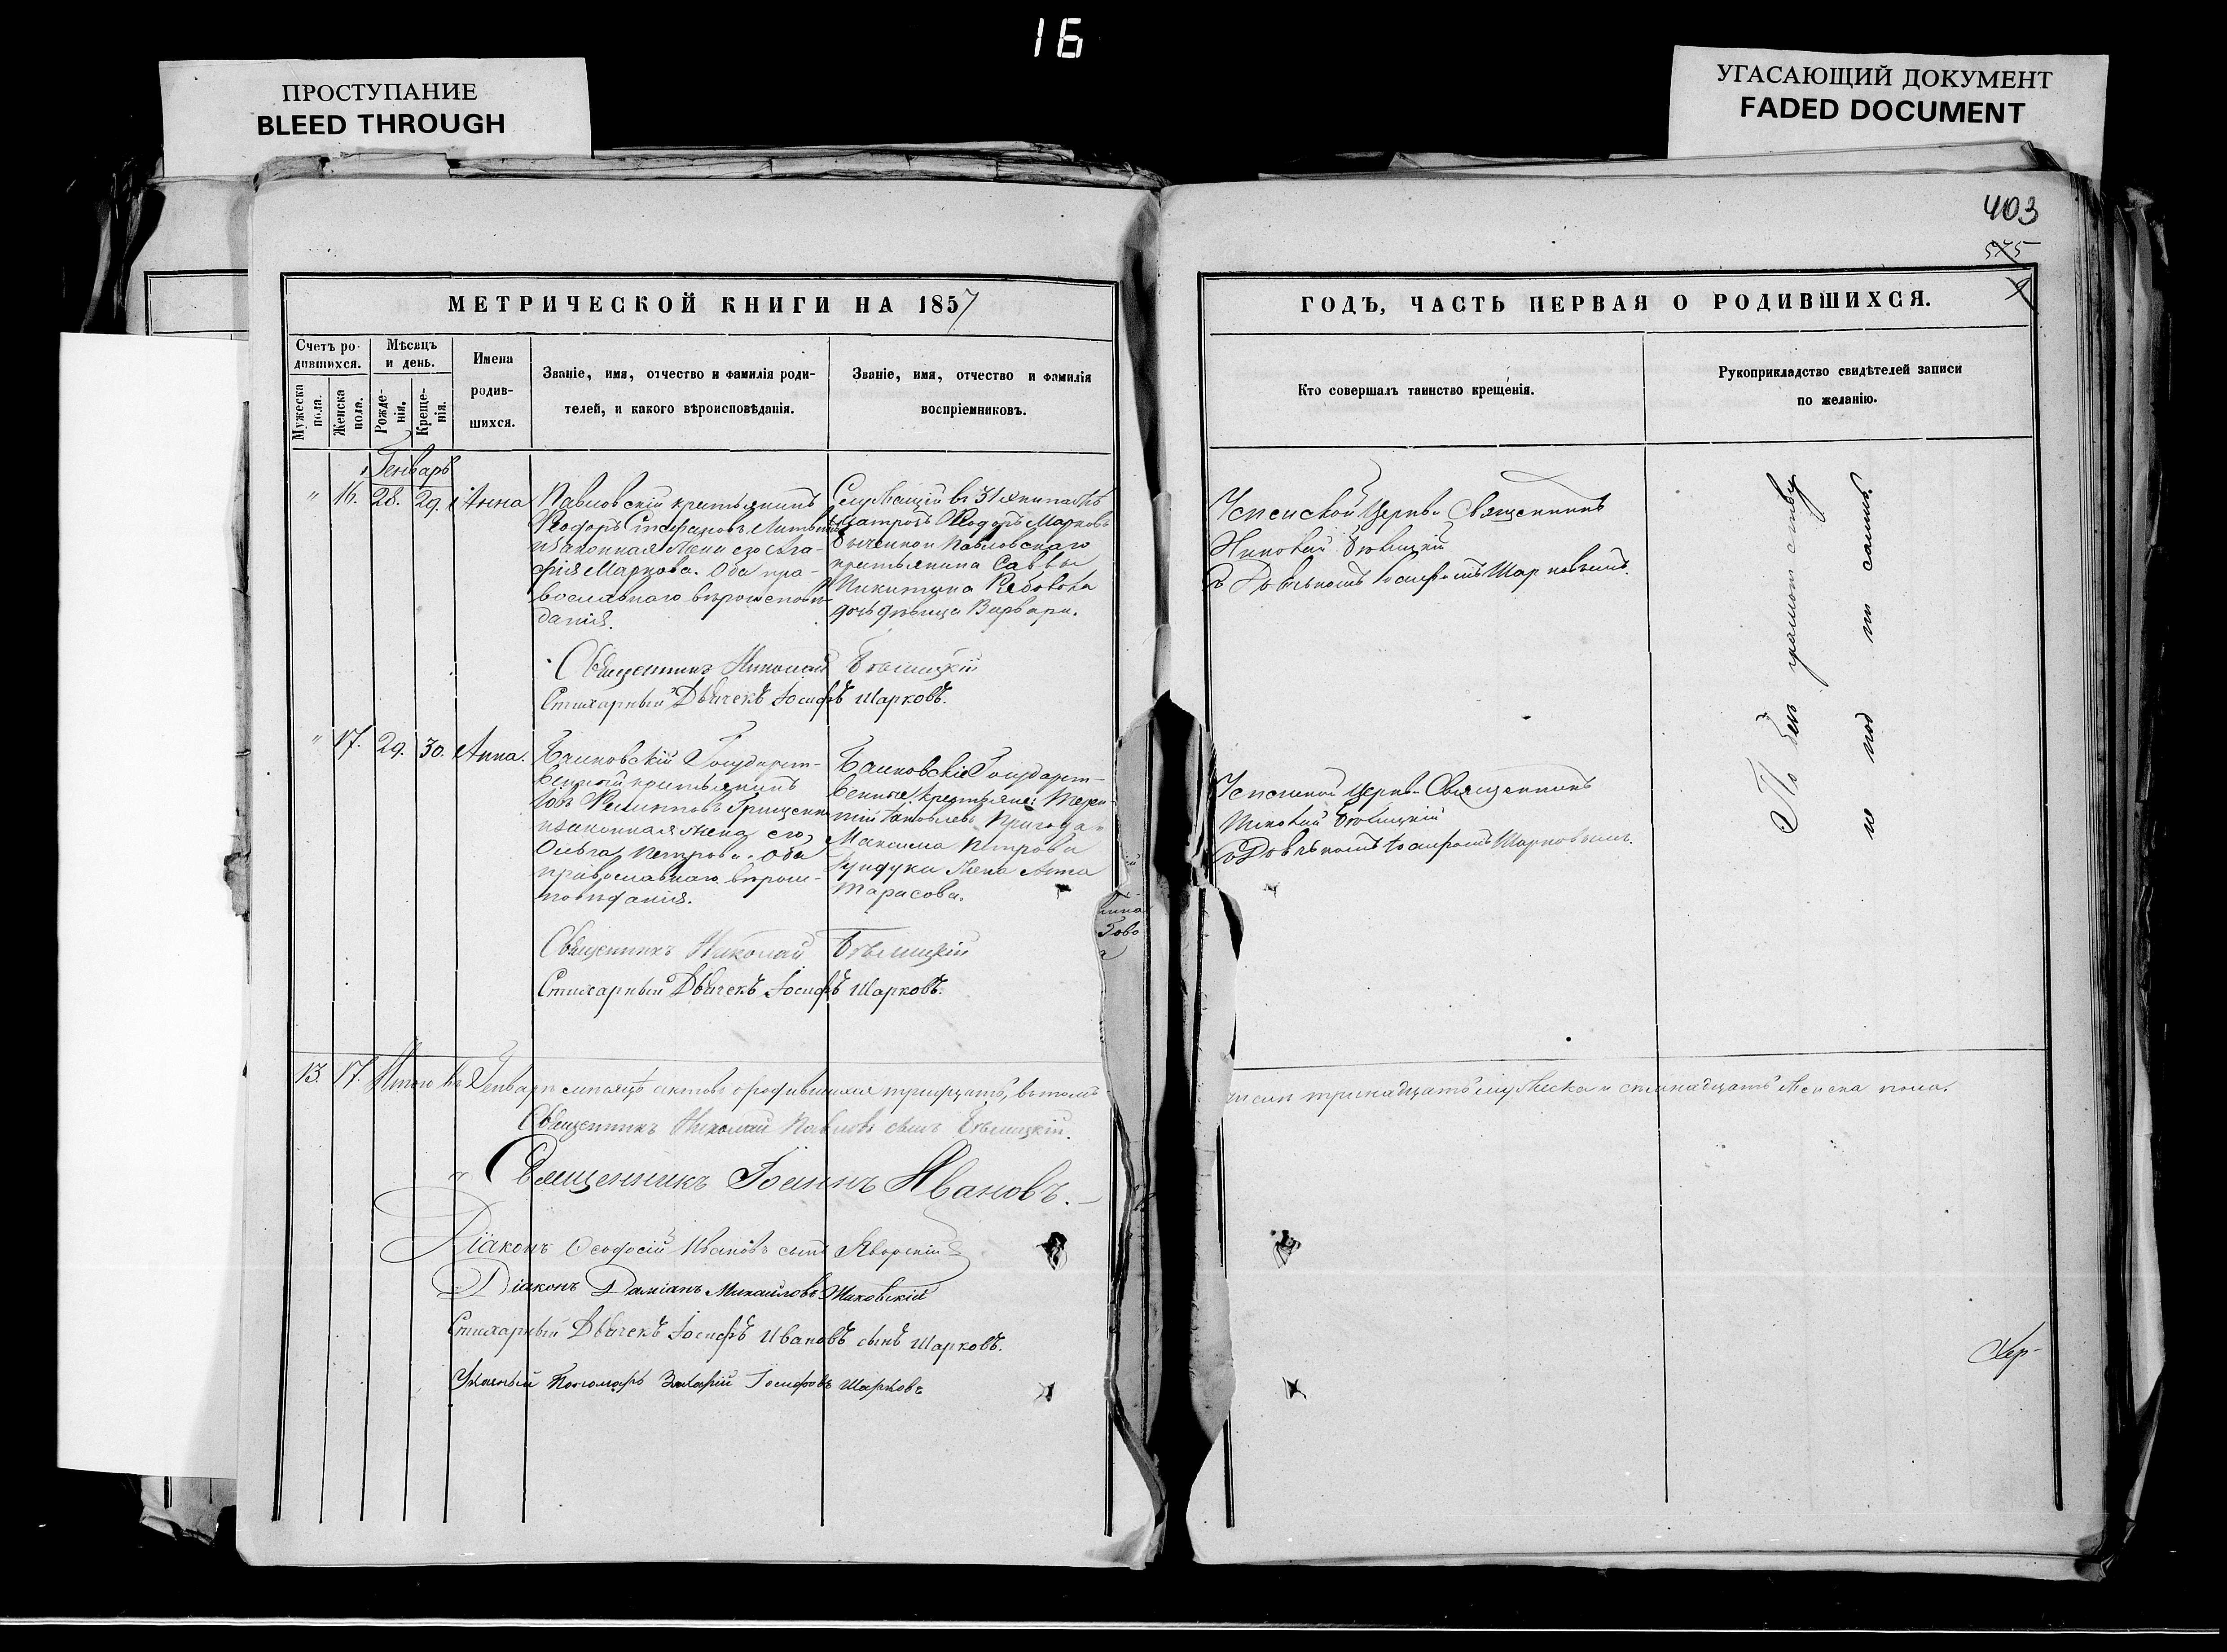 16
ПРОСТУПАНИЕ
BLEED THROUGH
УГАСАЮЩИЙ ДОКУМЕНТ
FADED DOCUMENT
403
575
МЕТРИЧЕСКОЙ КНИГИ НА 1857
Счетъ ро-
дившихся.
Мѣсяцъ
и день.
Мужеска
пола.
Женска
пола.
Рожде-
нія.
Креще-
нія.
Имена
родив-
шихся.
Званіе, имя, отчество и фамилія роди-
телей, и какого вѣроисповѣданія.
Званіе, имя, отчество и фамилія
воспріемниковъ.
Генварь
" 16. 28. 29. Анна
Павловскій крестьянинъ
Ѳеодоръ Стефановъ
и законная жена его Ага-
фія Маркова. Оба пра-
вославнаго вѣроисповѣ-
данія.
Служащій въ 31
матрозъ Ѳеодоръ Марковъ
Павловскаго
крестьянина Саввы
Никитина
дочь дѣвица Варвара.
Священникъ Николай Бѣлицкій
Стихарный Дьячекъ Іосифъ Шарковъ.
" 17. 29. 30. Анна.
Государст-
венный крестьянинъ
Іовъ Филипповъ Грищенко
и законная жена его
Ольга Петрова. Оба
православнаго вѣроис-
повѣданія.
Государст-
венные крестьяне: Терен-
тій Яковлевъ Пригода и
Максима Петрова
жена Анна
Тарасова.
Священникъ Николай Бѣлицкій
Стихарный Дьячекъ Іосифъ Шарковъ.
13. 17. Итого въ Генварѣ мѣсяцѣ актовъ о родившихся тридцать, въ томъ
Священникъ Николай Павловъ сынъ Бѣлицкій.
Священникъ Іоаннъ Ивановъ.
Діаконъ Ѳеодосій Ивановъ сынъ Яворскій
Діаконъ Даміанъ Михайловъ
Стихарный Дьячекъ Іосифъ Ивановъ сынъ Шарковъ.
Пономарь Захарій Іосифовъ Шарковъ
ГОДЪ, ЧАСТЬ ПЕРВАЯ О РОДИВШИХСЯ.
Кто совершалъ таинство крещенія.
Рукоприкладство свидѣтелей записи
по желанію.
Успенской Церкви Священникъ
Николай Бѣлицкій
съ Дьячкомъ Іосифомъ Шарковымъ.
Успенской Церкви Священникъ
Николай Бѣлицкій
съ Дьячкомъ Іосифомъ Шарковымъ.
По без грамотству
не под
числѣ тринадцать мужеска и семнадцать женска пола.
Хер-